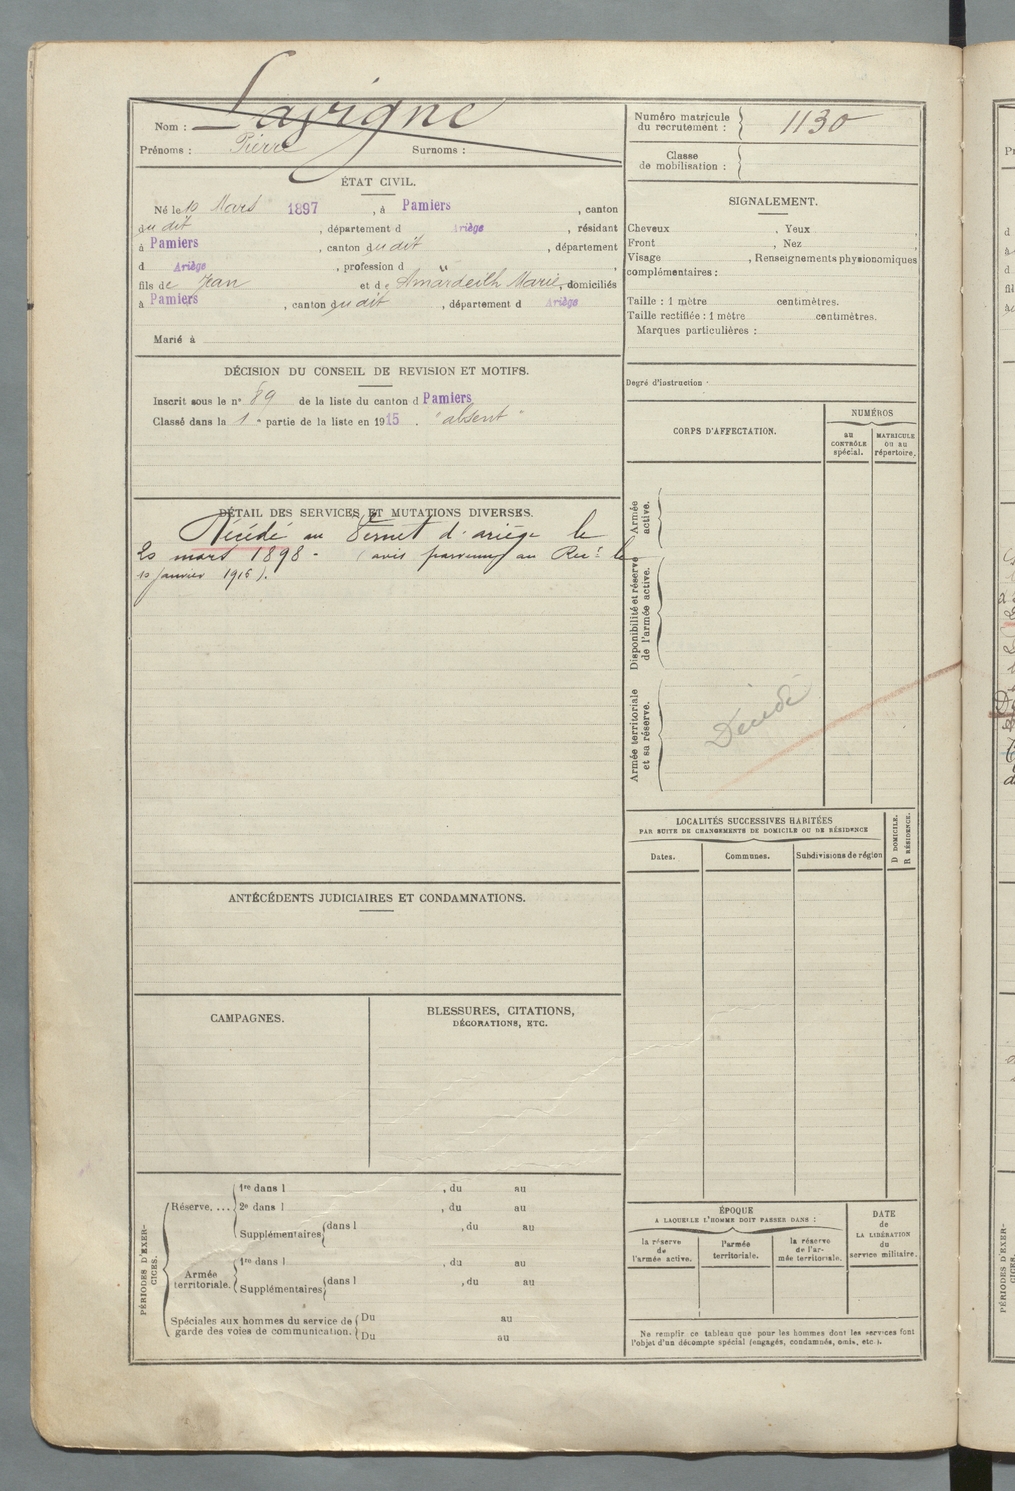 Nom : Lavigne
Prénoms : Pierre Surnoms :
Numéro matricule du recrutement : 1130
Classe de mobilisation :
ÉTAT CIVIL.
Né le 10 Mars 1897, à Pamiers, canton
du dit, département d Ariège, résidant
à Pamiers, canton du dit, département
d Ariège, profession d "
fils de Jean et de Amardeilh Marie, domiciliés
à Pamiers, canton du dit, département d Ariège
Marié à
SIGNALEMENT.
Cheveux , Yeux ,
Front , Nez ,
Visage , Renseignements physionomiques
complémentaires :
Taille : 1 mètre centimètres.
Taille rectifiée : 1 mètre centimètres.
Marques particulières :
Degré d'instruction .
DÉCISION DU CONSEIL DE REVISION ET MOTIFS.
Inscrit sous le n° 89 de la liste du canton d Pamiers
Classé dans la 1e partie de la liste en 1915. "absent"
DÉTAIL DES SERVICES ET MUTATIONS DIVERSES.
Décédé au Vernet d'ariège le
20 mars 1898 - (avis parvenu au Rect le
10 janvier 1916).
CORPS D'AFFECTATION.
NUMÉROS
au CONTRÔLE spécial.
MATRICULE ou au répertoire.
Armée active.
Disponibilité et réserve de l'armée active.
Armée territoriale et sa réserve.
Décédé
LOCALITÉS SUCCESSIVES HABITÉES
PAR SUITE DE CHANGEMENTS DE DOMICILE OU DE RÉSIDENCE
Dates. Communes. Subdivisions de région
D DOMICILE.
R RÉSIDENCE.
ANTÉCÉDENTS JUDICIAIRES ET CONDAMNATIONS.
CAMPAGNES.
BLESSURES, CITATIONS,
DÉCORATIONS, ETC.
PÉRIODES D'EXERCICES.
Réserve. ...
1re dans l , du au
2e dans l , du au
Supplémentaires dans l , du au
Armée territoriale.
1re dans l , du au
Supplémentaires dans l , du au
Spéciales aux hommes du service de
garde des voies de communication.
Du au
Du au
ÉPOQUE
A LAQUELLE L'HOMME DOIT PASSER DANS :
la réserve de l'armée active.
l'armée territoriale.
la réserve de l'armée territoriale.
DATE
de
LA LIBÉRATION
du
service militaire.
Ne remplir ce tableau que pour les hommes dont les services font
l'objet d'un décompte spécial (engagés, condamnés, omis, etc.).